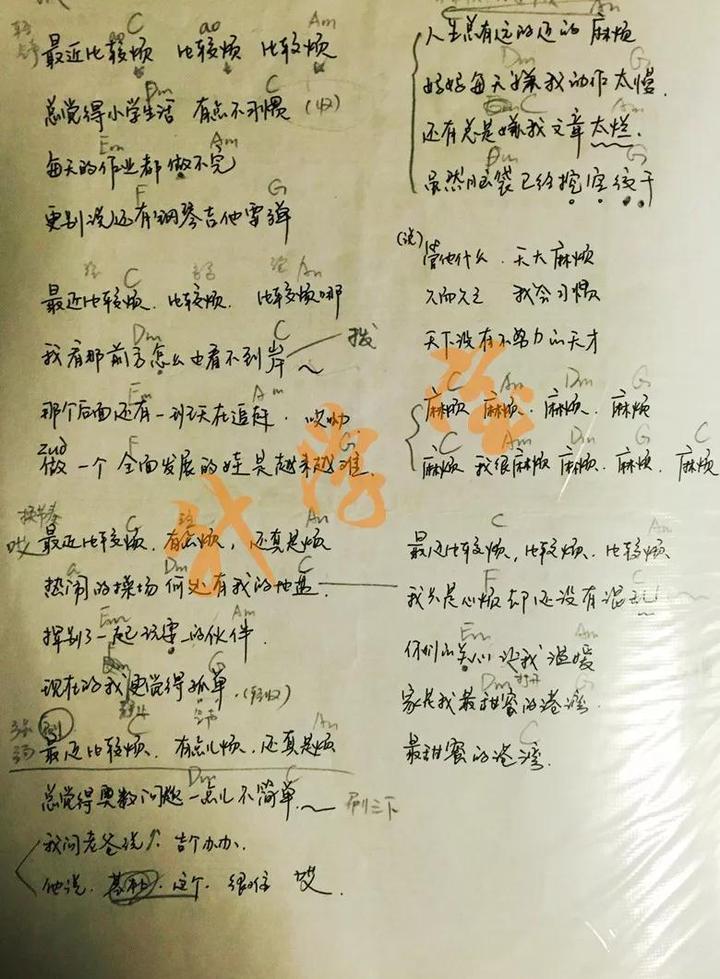 C ao Am
最近比较烦 比较烦 比较烦
Dm C
总觉得小学生活 有点不习惯 (收)
Em Am
每天的作业都做不完
F G
更别说还有钢琴吉他要弹
C Am
最近比较烦. 比较烦. 比较烦哪
Dm C
我看那前方怎么也看不到岸 拨
Em Am
那个后面还有一班天在追赶. 哎呦
zuo F G
做一个全面发展的娃是越来越难.
换节奏 C Am
哎 最近比较烦. 有点烦, 还真是烦
a Dm C
热闹的操场何处有我的地盘.
Em Am
挥别了一起玩耍的伙伴.
G
现在的我更觉得孤单.
C Am
最近比较烦. 有点儿烦. 还真是烦
Dm C
总觉得奥数问题一点儿不简单. 刷三下
我问老爸说: 咋个办办.
他说. 基础. 这个. 很难 哎.
人生总有远的近的麻烦
Dm G
妈妈每天嫌我动作太慢.
C Am
还有总是嫌我文章太烂.
Dm G
虽然脑袋已经挖空绞干
(说) 管他什么. 天大麻烦
久而久之 我会习惯
天下没有不努力的天才
C Am Dm G
麻烦 麻烦. 麻烦. 麻烦
C Am Dm G C
麻烦 我很麻烦 麻烦. 麻烦. 麻烦
C Am
最近比较烦, 比较烦. 比较烦
F C
我只是心烦却还没有混乱
Em Am
你们的关心让我温暖
Dm G
家是我最甜蜜的港湾.
C
最甜蜜的港湾.
升学啦